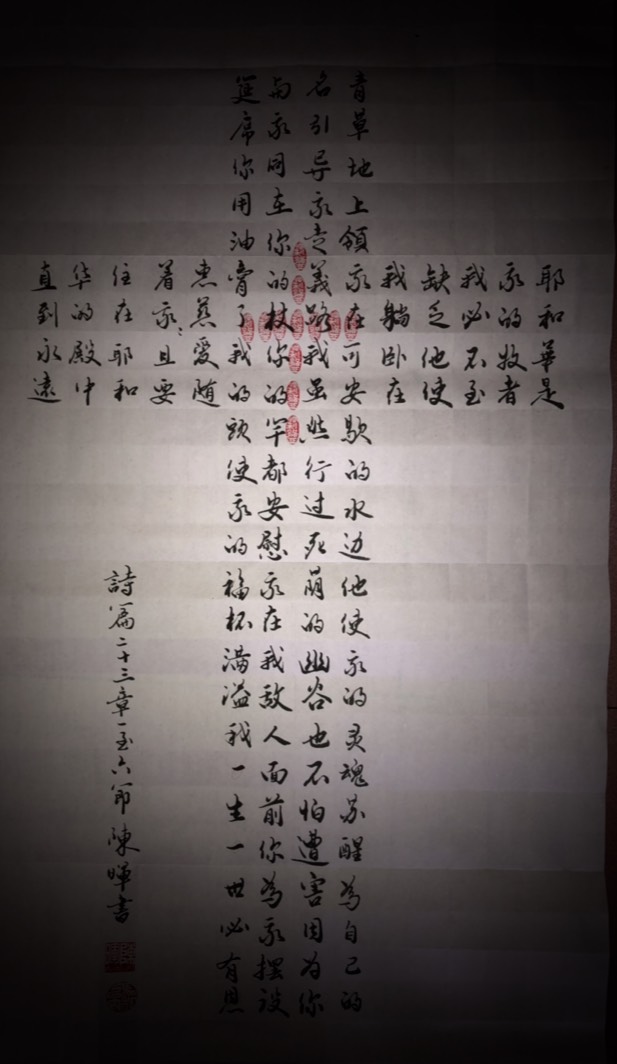 耶和華是
我的牧者
我必不至
缺乏他使
我躺卧在
青草地上領我在可安歇的水边他使我的灵魂苏醒為自己的
名引导我走義路我虽然行过死荫的幽谷也不怕遭害因为你
与我同在你的杖你的竿都安慰我在我敌人面前你為我摆设
筵席你用油膏了我的頭使我的福杯满溢我一生一世必有恩
惠慈愛随
着我且要
住在耶和
华的殿中
直到永遠
詩篇二十三章一至六節 陳暉書